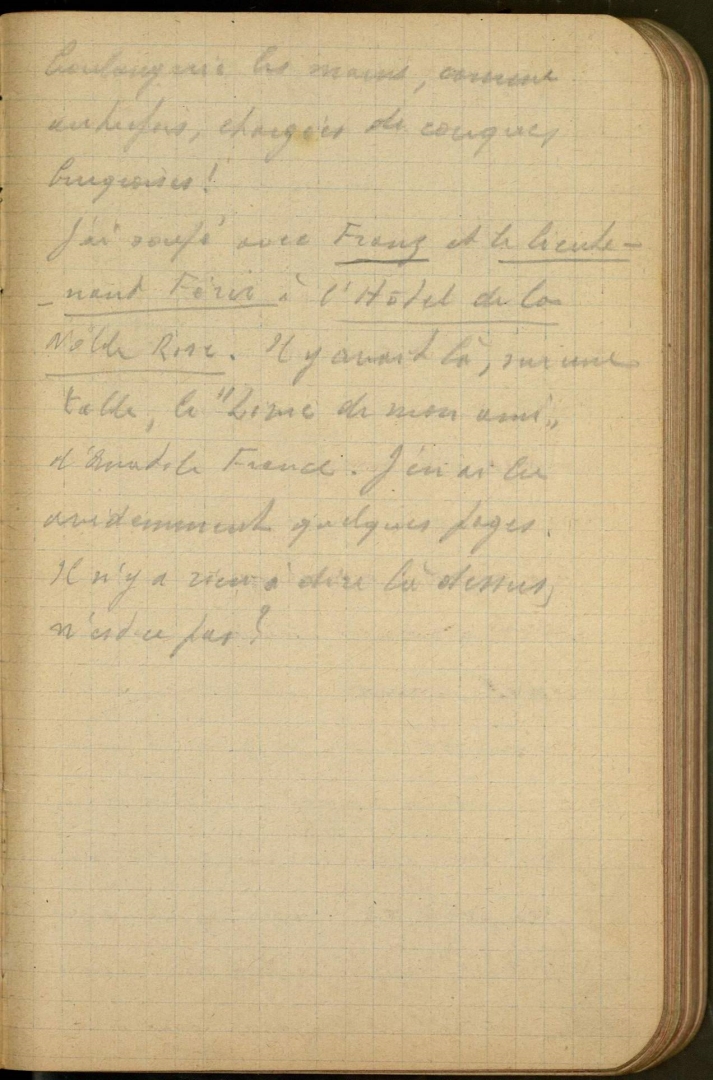 boulangerie les mains, comme
autrefois, chargées de couques
brugeoises!
J'ai soupé avec Franz et le lieute-
-nant Férir à l'Hôtel de la
Noble Rose. Il y avait là, sur une
table, le "Livre de mon ami"
d'Anatole France. J'en ai lu
avidemment quelques pages.
Il n'y a rien à dire là dessus,
n'est ce pas?